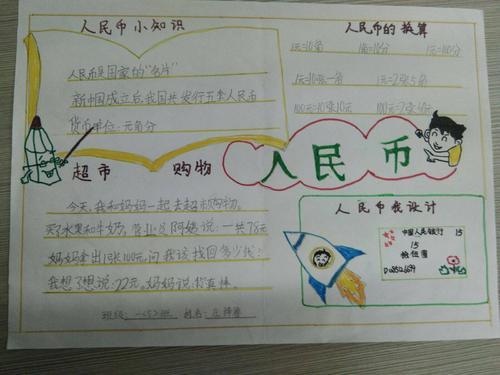 人民币小知识
人民币是国家的“名片”
新中国成立后，我国共发行五套人民币
货币单位：元角分
人民币的换算
1元=10角 1角=10分 1元=100分
1元=10张一角 1元=2张5角
100元=10张10元 100元=2张50元
人民币
超市购物
今天，我和妈妈一起去超市购物。
买了水果和牛奶，营业员阿姨说：一共78元
妈妈拿出1张100元，问我该找回多少钱？
我想了想说：22元。妈妈说：你真棒。
班级： 姓名：
人民币我设计
中国人民银行 15
15